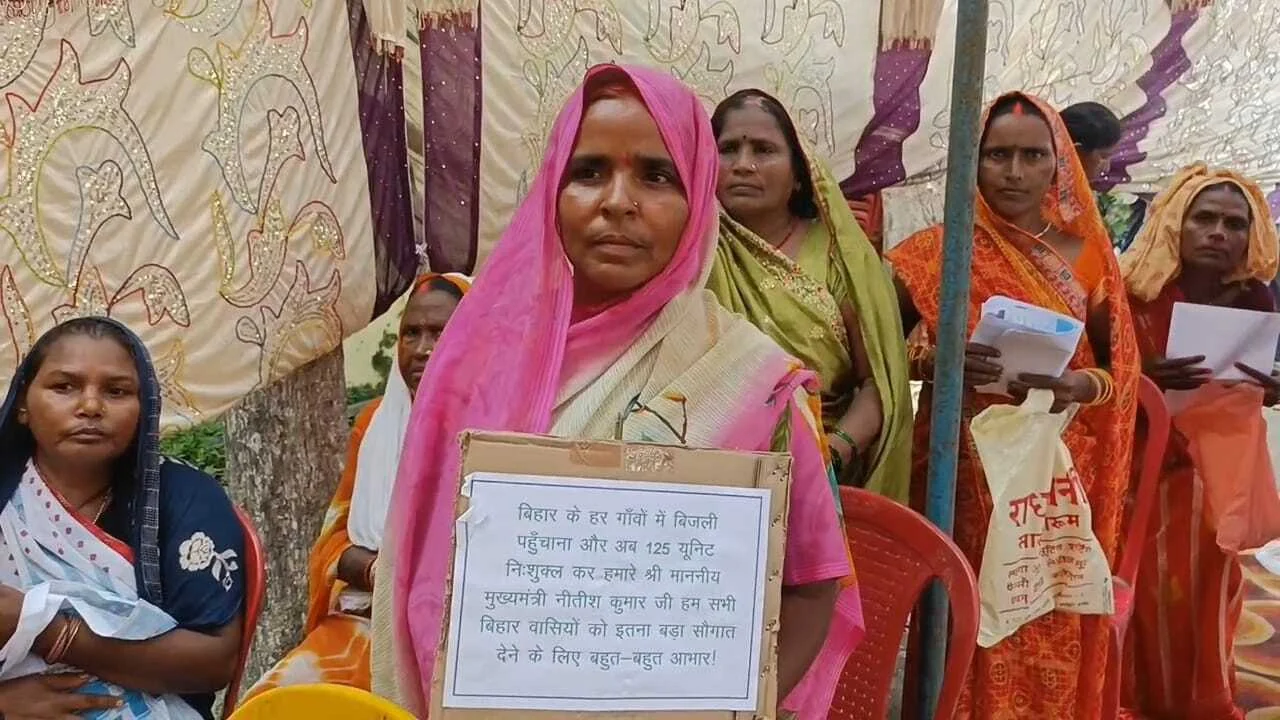 बिहार के हर गाँवों में बिजली
पहुँचाना और अब 125 यूनिट
निःशुल्क कर हमारे श्री माननीय
मुख्यमंत्री नीतीश कुमार जी हम सभी
बिहार वासियों को इतना बड़ा सौगात
देने के लिए बहुत–बहुत आभार!